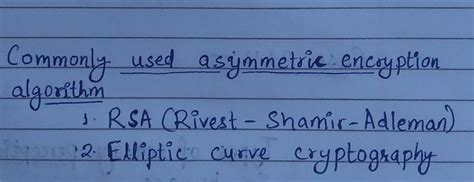 Commonly used asymmetric encryption
algorithm
1. RSA (Rivest - Shamir - Adleman)
2. Elliptic curve cryptography